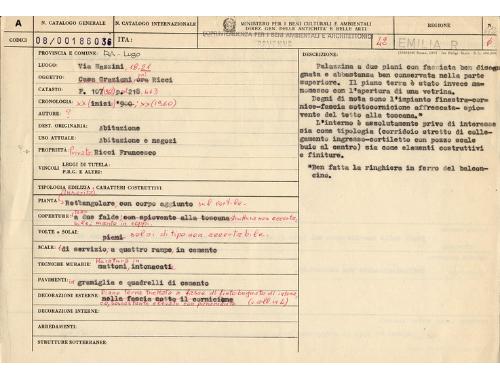 A
N. CATALOGO GENERALE
N. CATALOGO INTERNAZIONALE
MINISTERO PER I BENI CULTURALI E AMBIENTALI
DIREZ. GEN. DELLE ANTICHITÀ E BELLE ARTI
REGIONE
N.
CODICI
08/00186036
ITA:
SOPRINTENDENZA PER I BENI AMBIENTALI E ARCHITETTONICI
RAVENNA
EMILIA R.
PROVINCIA E COMUNE: RA-Lugo
LUOGO: Via Mazzini, 18.21
OGGETTO: Casa Graziani, ora Ricci
CATASTO: F. 107 p. 218, 463
CRONOLOGIA: XX (inizi '900, XX (1920)
AUTORE: ?
DEST. ORIGINARIA: Abitazione
USO ATTUALE: Abitazione e negozi
PROPRIETÀ: Privata: Ricci Francesco
VINCOLI
LEGGI DI TUTELA:
P.R.G. E ALTRI:
TIPOLOGIA EDILIZIA - CARATTERI COSTRUTTIVI
PIANTA: Rettangolare con corpo aggiunto sul cortile.
COPERTURE: a due falde; con spiovente alla toscana; struttura non accertata
VOLTE o SOLAI: piani solai di tipo non accertabile.
SCALE: di servizio, a quattro rampe, in cemento
TECNICHE MURARIE: Muratura in
mattoni, intonacata
PAVIMENTI: in graniglia e quadrelli di cemento
DECORAZIONI ESTERNE:
nella fascia sotto il cornicione
DECORAZIONI INTERNE:
ARREDAMENTI:
STRUTTURE SOTTERRANEE:
DESCRIZIONE:
Palazzina a due piani con fasciata ben disegnata
gnata e abbastanza ben conservata nella parte
superiore. Il piano terra è stato invece ma-
nomesso con l'apertura di una vetrina.
Degni di nota sono l'impianto finestra-cor-
nice-fascia sottocornicione affrescata- spio-
vente del tetto alla toscana."
L'interno è assolutamente privo di interesse
sia come tipologia (corridoio stretto di colle-
gamento ingresso-cortiletto con pozzo scale
buio al centro) sia come elementi costruttivi
e finiture.
"Ben fatta la ringhiera in ferro del balcon-
cino.